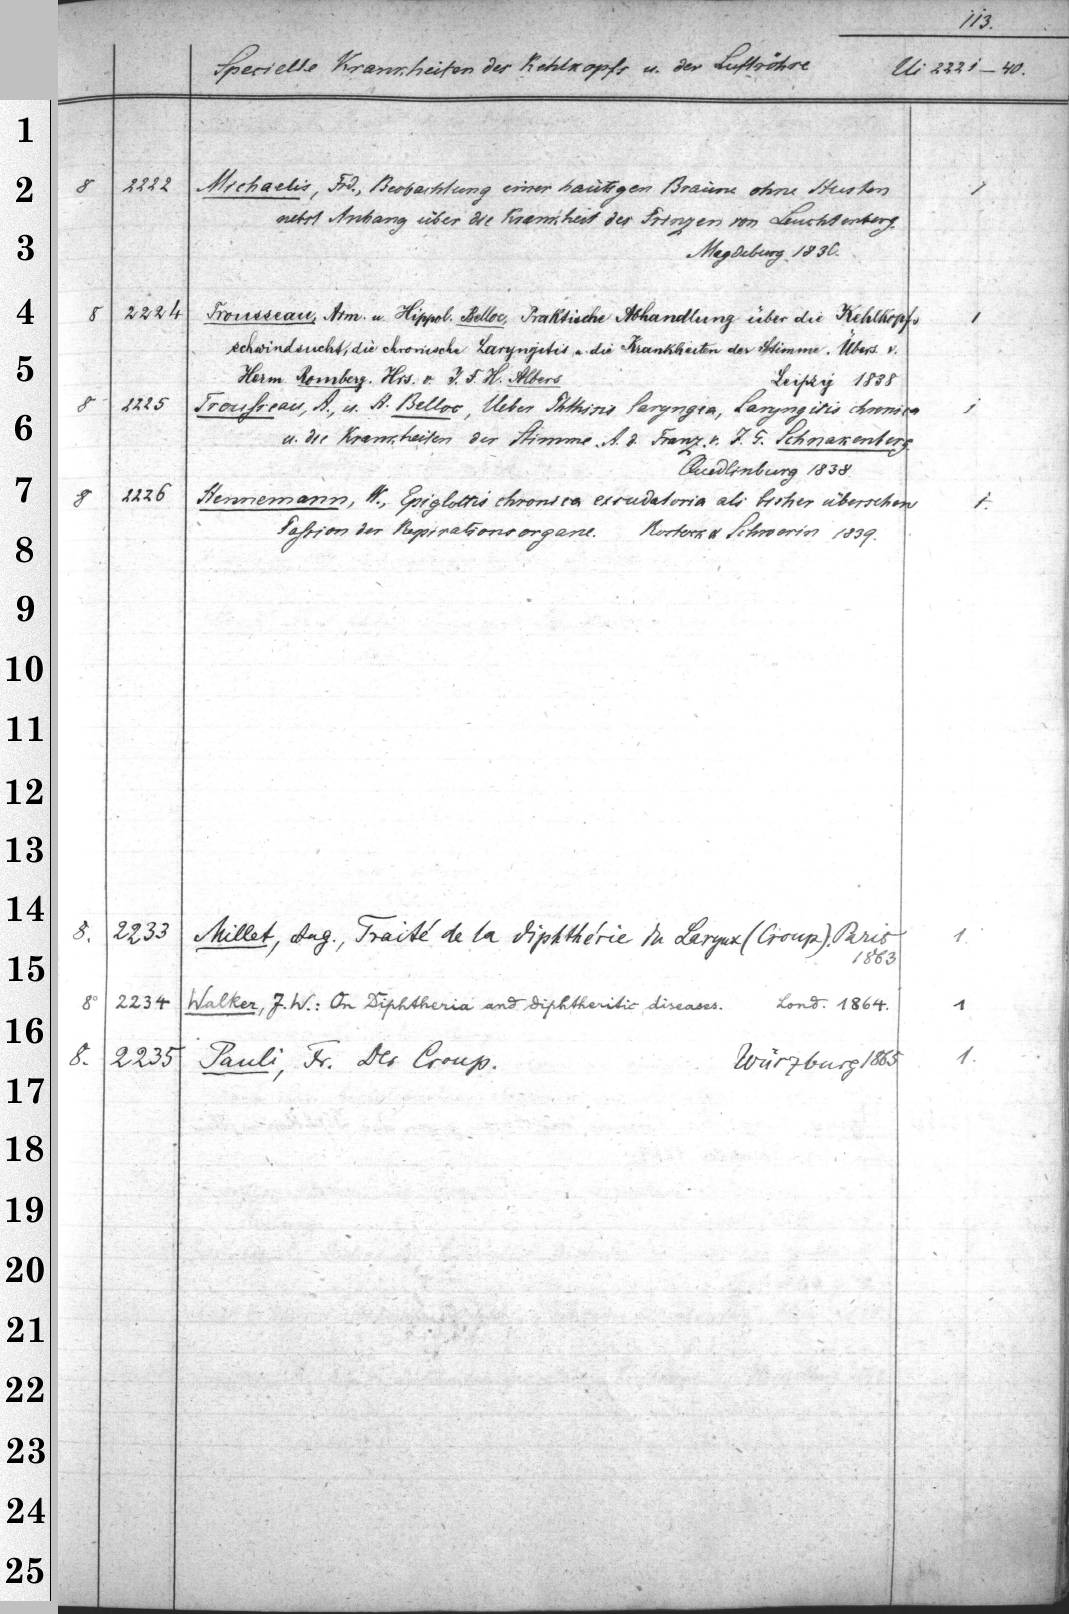 113.
Specielle Krankheiten des Kehlkopfs u. der Luftröhre Ui 2221–40.
1
2
3
4
5
6
7
8
9
10
11
12
13
14
15
16
17
18
19
20
21
22
23
24
25
8 2222 Michaelis, Frd., Beobachtung einer häutigen Bräune ohne Husten 1
nebst Anhang über die Krankheit des Prinzen von Leuchtenberg.
Magdeburg 1836.
8 2224 Trousseau, Arm. u. Hippol. Belloc, Praktische Abhandlung über die Kehlkopfs 1
schwindsucht, die chronische Laryngitis u. die Krankheiten der Stimme. Übers. v.
Herm Romberg. Hrs. v. J. F. H. Albers Leipzig 1838
8 2225 Trousseau, A., u. H. Belloc, Ueber Phthisis laryngea, Laryngitis chronica 1
u. die Krankheiten der Stimme. A. d. Franz. v. J. G. Schnakenberg.
Quedlinburg 1838
8 2226 Hennemann, W., Epiglottis chronica exsudatoria als bisher übersehene 1.
Passion der Respirationsorgane. Rostock & Schwerin 1839.
8. 2233 Millet, Aug., Traité de la diphthérie du Larynx (Croup). Paris 1.
1863
8° 2234 Walker, J. W.: On Diphtheria and diphtheritic diseases. Lond. 1864. 1
8. 2235 Pauli, Fr. Der Croup. Würzburg 1865 1.